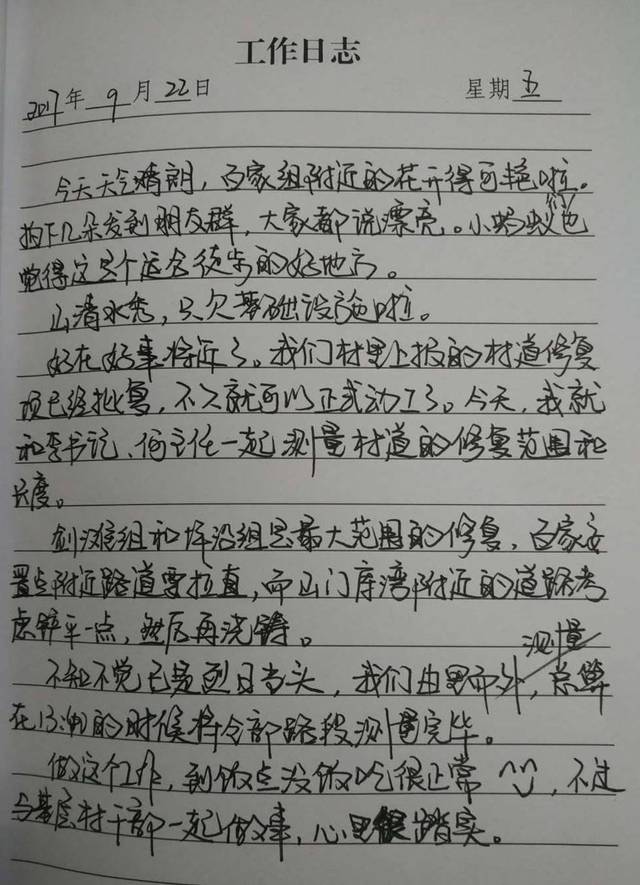 工作日志
2017年 9月22日 星期五
今天天气晴朗，百家组附近的花开得可艳啦。
拍下几朵发到朋友群，大家都说漂亮。小蚂蚁也
觉得这是个适合徒步的好地方。
山清水秀，只欠基础设施啦。
好在好事将近了。我们村里上报的村道修复
项已经批复，不久就可以正式动工了。今天，我就
和李书记、何主任一起测量村道的修复范围和
长度。
剑滩组和岸沿组是最大范围的修复，百家安
置点附近路道要拉直，而山门库湾附近的道路考
虑铲平一点，然后再浇铸。
测量
不知不觉已是烈日当头，我们由里而外，总算
在13:40的时候将全部路段测量完毕。
做这个工作，到饭点没饭吃很正常^^，不过
与基层村干部一起做事，心里很踏实。